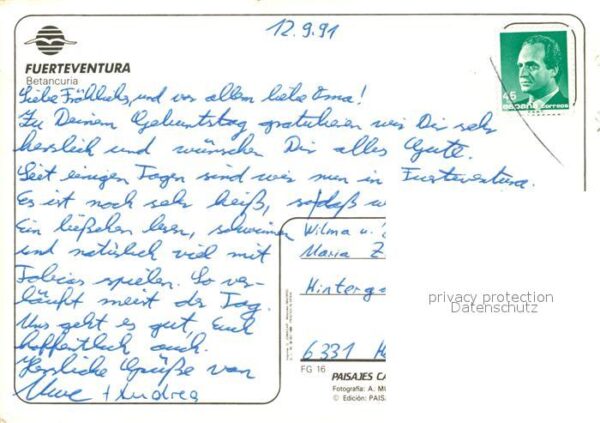 12.9.91
FUERTEVENTURA
Betancuria
45
ESPAÑA correos
Liebe Fröhlichs, und vor allem liebe Oma!
Zu Deinem Geburtstag gratulieren wir Dir sehr
herzlich und wünschen Dir alles Gute.
Seit einigen Tagen sind wir nun in Fuerteventura.
Es ist noch sehr heiß, sodaß w
Ein bißchen lesen, schwimmen
und natürlich viel mit
Tobias spielen. So ver-
läuft meist der Tag.
Uns geht es gut, Euch
hoffentlich auch.
Herzliche Grüße von
Uwe + Andrea
Wilma u.
Maria Z
Hinterga
6331
FG 16
PAISAJES CA
Fotografía: A. MU
© Edición: PAIS
privacy protection
Datenschutz